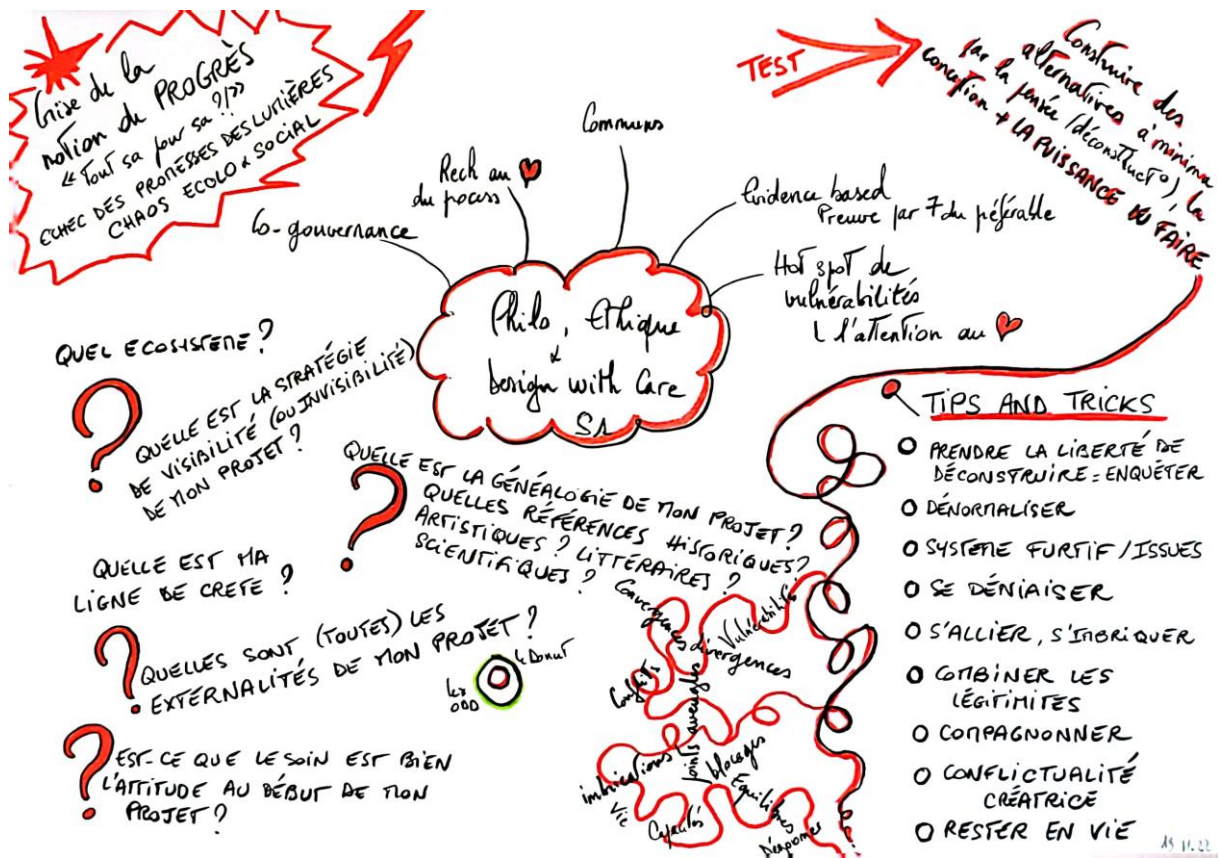 Crise de la
notion de PROGRÈS
« Tout ça pour ça ?! »
ECHEC DES PROMESSES DES LUMIÈRES
CHAOS ECOLO & SOCIAL
TEST
Construire des
alternatives à minima
par la pensée (déconstruct°), la
conception + LA PUISSANCE DU FAIRE
Co-gouvernance
Rech au
du pocess
Communs
Evidence based
Preuve par 7 du préférable
Hot spot de
vulnérabilités
l'attention au
Philo, Ethique
&
Design with Care
S1
QUEL ECOSISTEME ?
QUELLE EST LA STRATÉGIE
DE VISIBILITÉ (OU INVISIBILITÉ)
DE MON PROJET ?
QUELLE EST LA GÉNÉALOGIE DE MON PROJET ?
QUELLES RÉFÉRENCES HISTORIQUES ?
ARTISTIQUES ? LITTÉRAIRES ?
SCIENTIFIQUES ?
QUELLE EST MA
LIGNE DE CRETE ?
QUELLES SONT (TOUTES) LES
EXTERNALITÉS DE MON PROJET ?
Donut
ODD
EST-CE QUE LE SOIN EST BIEN
L'ATTITUDE AU DÉBUT DE MON
PROJET ?
Convergences
divergences
Vulnérabilités
Conflits
Points aveugles
imbrications
Vie
blocages
Equilibres
Capacités
TIPS AND TRICKS
PRENDRE LA LIBERTÉ DE
DÉCONSTRUIRE = ENQUÊTER
DÉNORMALISER
SYSTEME FURTIF / ISSUES
SE DÉNIAISER
S'ALLIER, S'IMBRIQUER
COMBINER LES
LÉGITIMITES
COMPAGNONNER
CONFLICTUALITÉ
CRÉATRICE
RESTER EN VIE